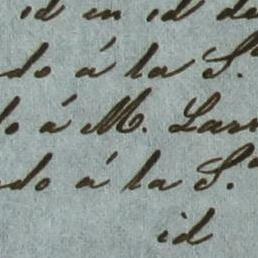 id en id de
do á la S.
do á M. Lar
do á la S.
id